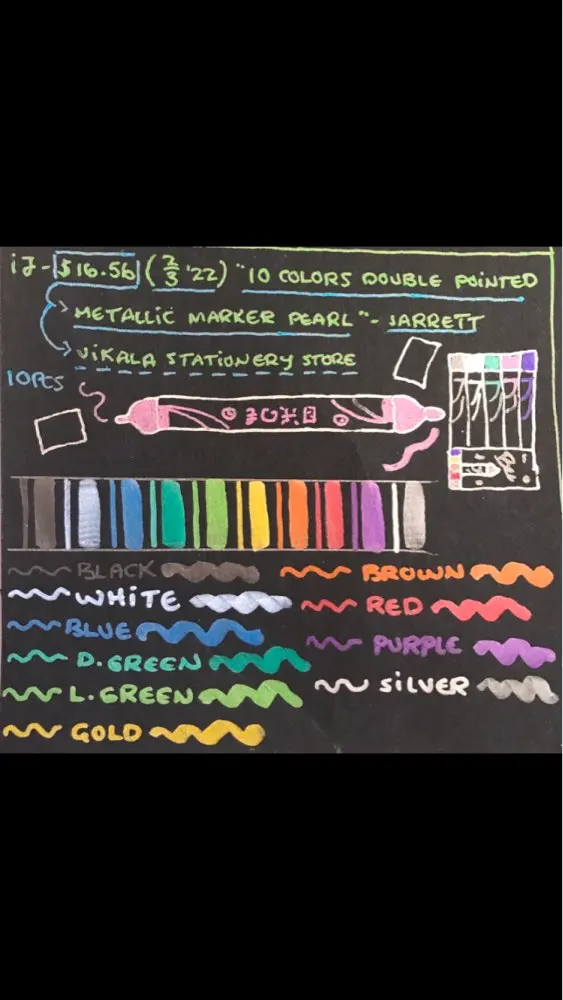 i7 - $16.56 (2/3 '22) "10 COLORS DOUBLE POINTED
METALLIC MARKER PEARL" - JARRETT
ViKALA STATIONERY STORE
10PCS
BLACK
BROWN
WHITE
RED
BLUE
PURPLE
D. GREEN
L. GREEN
SiLVER
GOLD